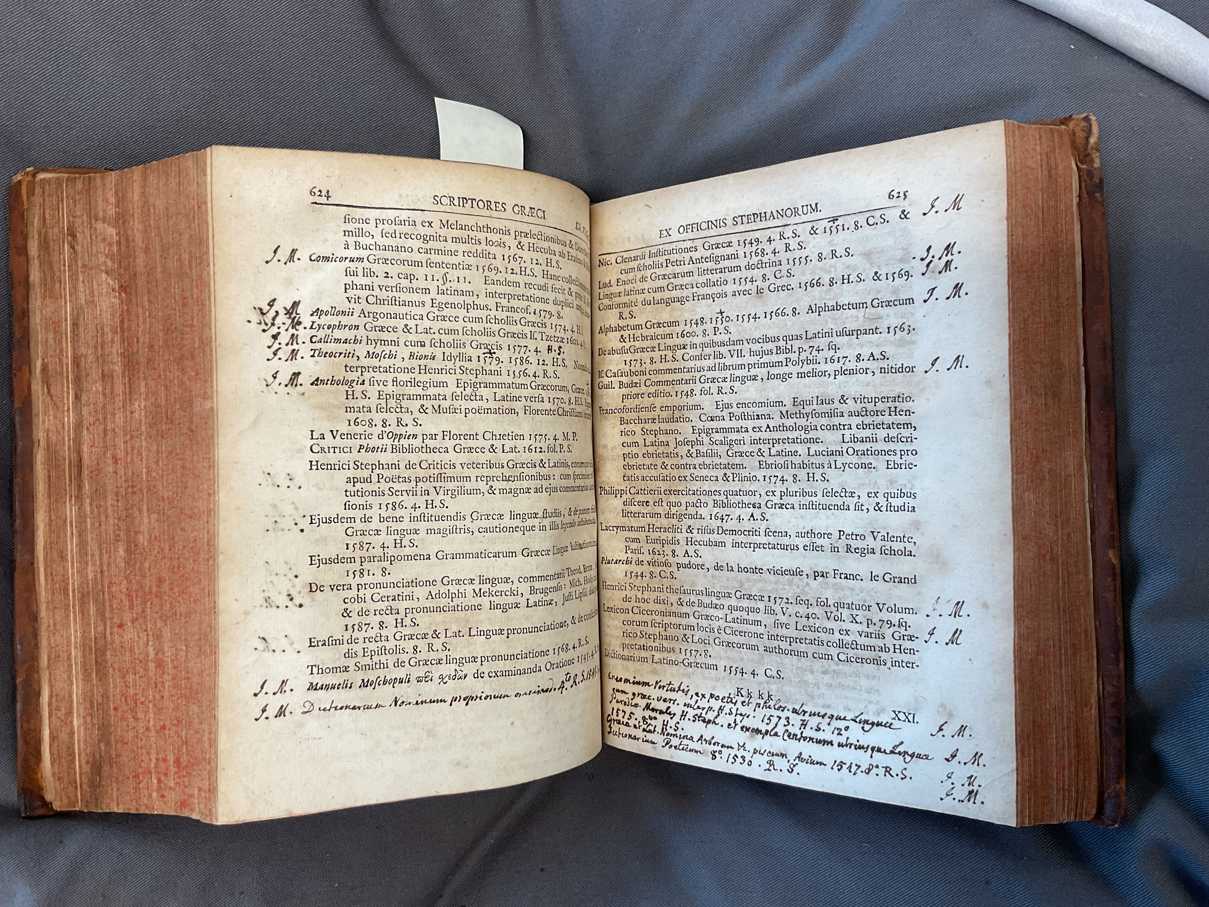 624
SCRIPTORES GRÆCI
sione prosaria ex Melanchthonis prælectionibus &
millo, sed recognita multis locis, & Hecuba ab
à Buchanano carmine reddita 1567. 12. H.S
J. M. Comicorum Græcorum sententiæ 1569. 12. H.S. Hanc
sui lib. 2. cap. 11. §. 11. Eandem recudi fecit &
phani versionem latinam, interpretatione duplici
vit Christianus Egenolphus. Francof. 1579. 8.
J. M. Apollonii Argonautica Græce cum scholiis Græcis 1574. 4. H
J. M. Lycophron Græce & Lat. cum scholiis Græcis Is. Tzetzæ 1601. 4.
J. M. Callimachi hymni cum scholiis Græcis 1577. 4. H. S.
J. M. Theocriti, Moschi, Bionis Idyllia 1579. 1586. 12. H.S.
terpretatione Henrici Stephani 1556. 4. R.S.
J. M. Anthologia sive florilegium Epigrammatum Græcorum, Græce
H. S. Epigrammata selecta, Latine versa 1570. 8. H.S.
mata selecta, & Musæi poëmation, Florente Christiano
1608. 8. R. S.
La Venerie d'Oppien par Florent Chretien 1575. 4. M. P.
CRITICI Photii Bibliotheca Græce & Lat. 1612. fol. P. S.
Henrici Stephani de Criticis veteribus Græcis & Latinis,
apud Poëtas potissimum reprehensionibus: cum
tutionis Servii in Virgilium, & magnæ ad ejus commentarios
sionis 1586. 4. H. S.
Ejusdem de bene instituendis Græcæ linguæ studiis, &
Græcæ linguæ magistris, cautioneque in illis legendis adhibenda
1587. 4. H. S.
Ejusdem paralipomena Grammaticarum Græcæ Linguæ
1581. 8.
De vera pronunciatione Græcæ linguæ, commentarii Theod. Bezæ
cobi Ceratini, Adolphi Mekercki, Brugensis:
& de recta pronunciatione linguæ Latinæ, Justi Lipsii
1587. 8. H. S.
Erasmi de recta Græcæ & Lat. Linguæ pronunciatione, &
dis Epistolis. 8. R. S.
Thomæ Smithi de Græcæ linguæ pronunciatione 1568. 4. R. S.
J. M. Manuelis Moschopuli περὶ σχεδῶν de examinanda Oratione
J. M. Dictionarium Nominum propriorum 4to R. S.
625
EX OFFICINIS STEPHANORUM.
Nic. Clenardi Institutiones Græcæ 1549. 4. R.S. & 1551. 8. C.S. & J. M
cum scholiis Petri Antesignani 1568. 4. R. S.
Lud. Enoci de Græcarum litterarum doctrina 1555. 8. R.S. J. M.
Linguæ latinæ cum Græca collatio 1554. 8. C. S. J. M.
Conformité du language François avec le Grec. 1566. 8. H. S. & 1569.
R. S. J. M.
Alphabetum Græcum 1548. 1550. 1554. 1566. 8. Alphabetum Græcum
& Hebraicum 1600. 8. P. S.
De abusu Græcæ Linguæ in quibusdam vocibus quas Latini usurpant. 1563.
1573. 8. H. S. Confer lib. VII. hujus Bibl. p. 74. sq.
If. Casauboni commentarius ad librum primum Polybii. 1617. 8. A. S.
Guil. Budæi Commentarii Græcæ linguæ, longe melior, plenior, nitidor J. M.
priore editio. 1548. fol. R. S.
Francofordiense emporium. Ejus encomium. Equi laus & vituperatio.
Baccharæ laudatio. Cœna Posthiana. Methysomisia auctore Hen-
rico Stephano. Epigrammata ex Anthologia contra ebrietatem,
cum Latina Josephi Scaligeri interpretatione. Libanii descri-
ptio ebrietatis, & Basilii, Græce & Latine. Luciani Orationes pro
ebrietate & contra ebrietatem. Ebriosi habitus à Lycone. Ebrie-
tatis accusatio ex Seneca & Plinio. 1574. 8. H. S.
Philippi Cattierii exercitationes quatuor, ex pluribus selectæ, ex quibus
discere est quo pacto Bibliotheca Græca instituenda sit, & studia
litterarum dirigenda. 1647. 4. A. S.
Lacrymatum Heracliti & risus Democriti scena, authore Petro Valente,
cum Euripidis Hecubam interpretaturus esset in Regia schola.
Paris. 1623. 8. A. S.
Plutarchi de vitioso pudore, de la honte vicieuse, par Franc. le Grand
1544. 8. C.S.
Henrici Stephani thesaurus linguæ Græcæ 1572. seq. fol. quatuor Volum. J. M.
de hoc dixi, & de Budæo quoque lib. V. c. 40. Vol. X. p. 79. sq.
Lexicon Ciceronianum Græco-Latinum, sive Lexicon ex variis Græ- J. M
corum scriptorum locis è Cicerone interpretatis collectum ab Hen-
rico Stephano & Loci Græcorum authorum cum Ciceronis inter-
pretationibus 1557. 8.
Dictionarium Latino-Græcum 1554. 4. C.S.
K k k k
XXI.
Virtutis, ex poetis et philos. utriusque Linguæ J. M.
græc. vers. 1573. H. S. 12°
Parodiæ Morales H. Steph. et exempla Centonum utriusque Lingua J. M.
1575. 8vo H. S.
Græca et Lat. Nomina Arborum piscium, Avium 1547. 8°. R. S. J. M.
Dictionarium Poeticum 8°. 1530. R. S. J. M.